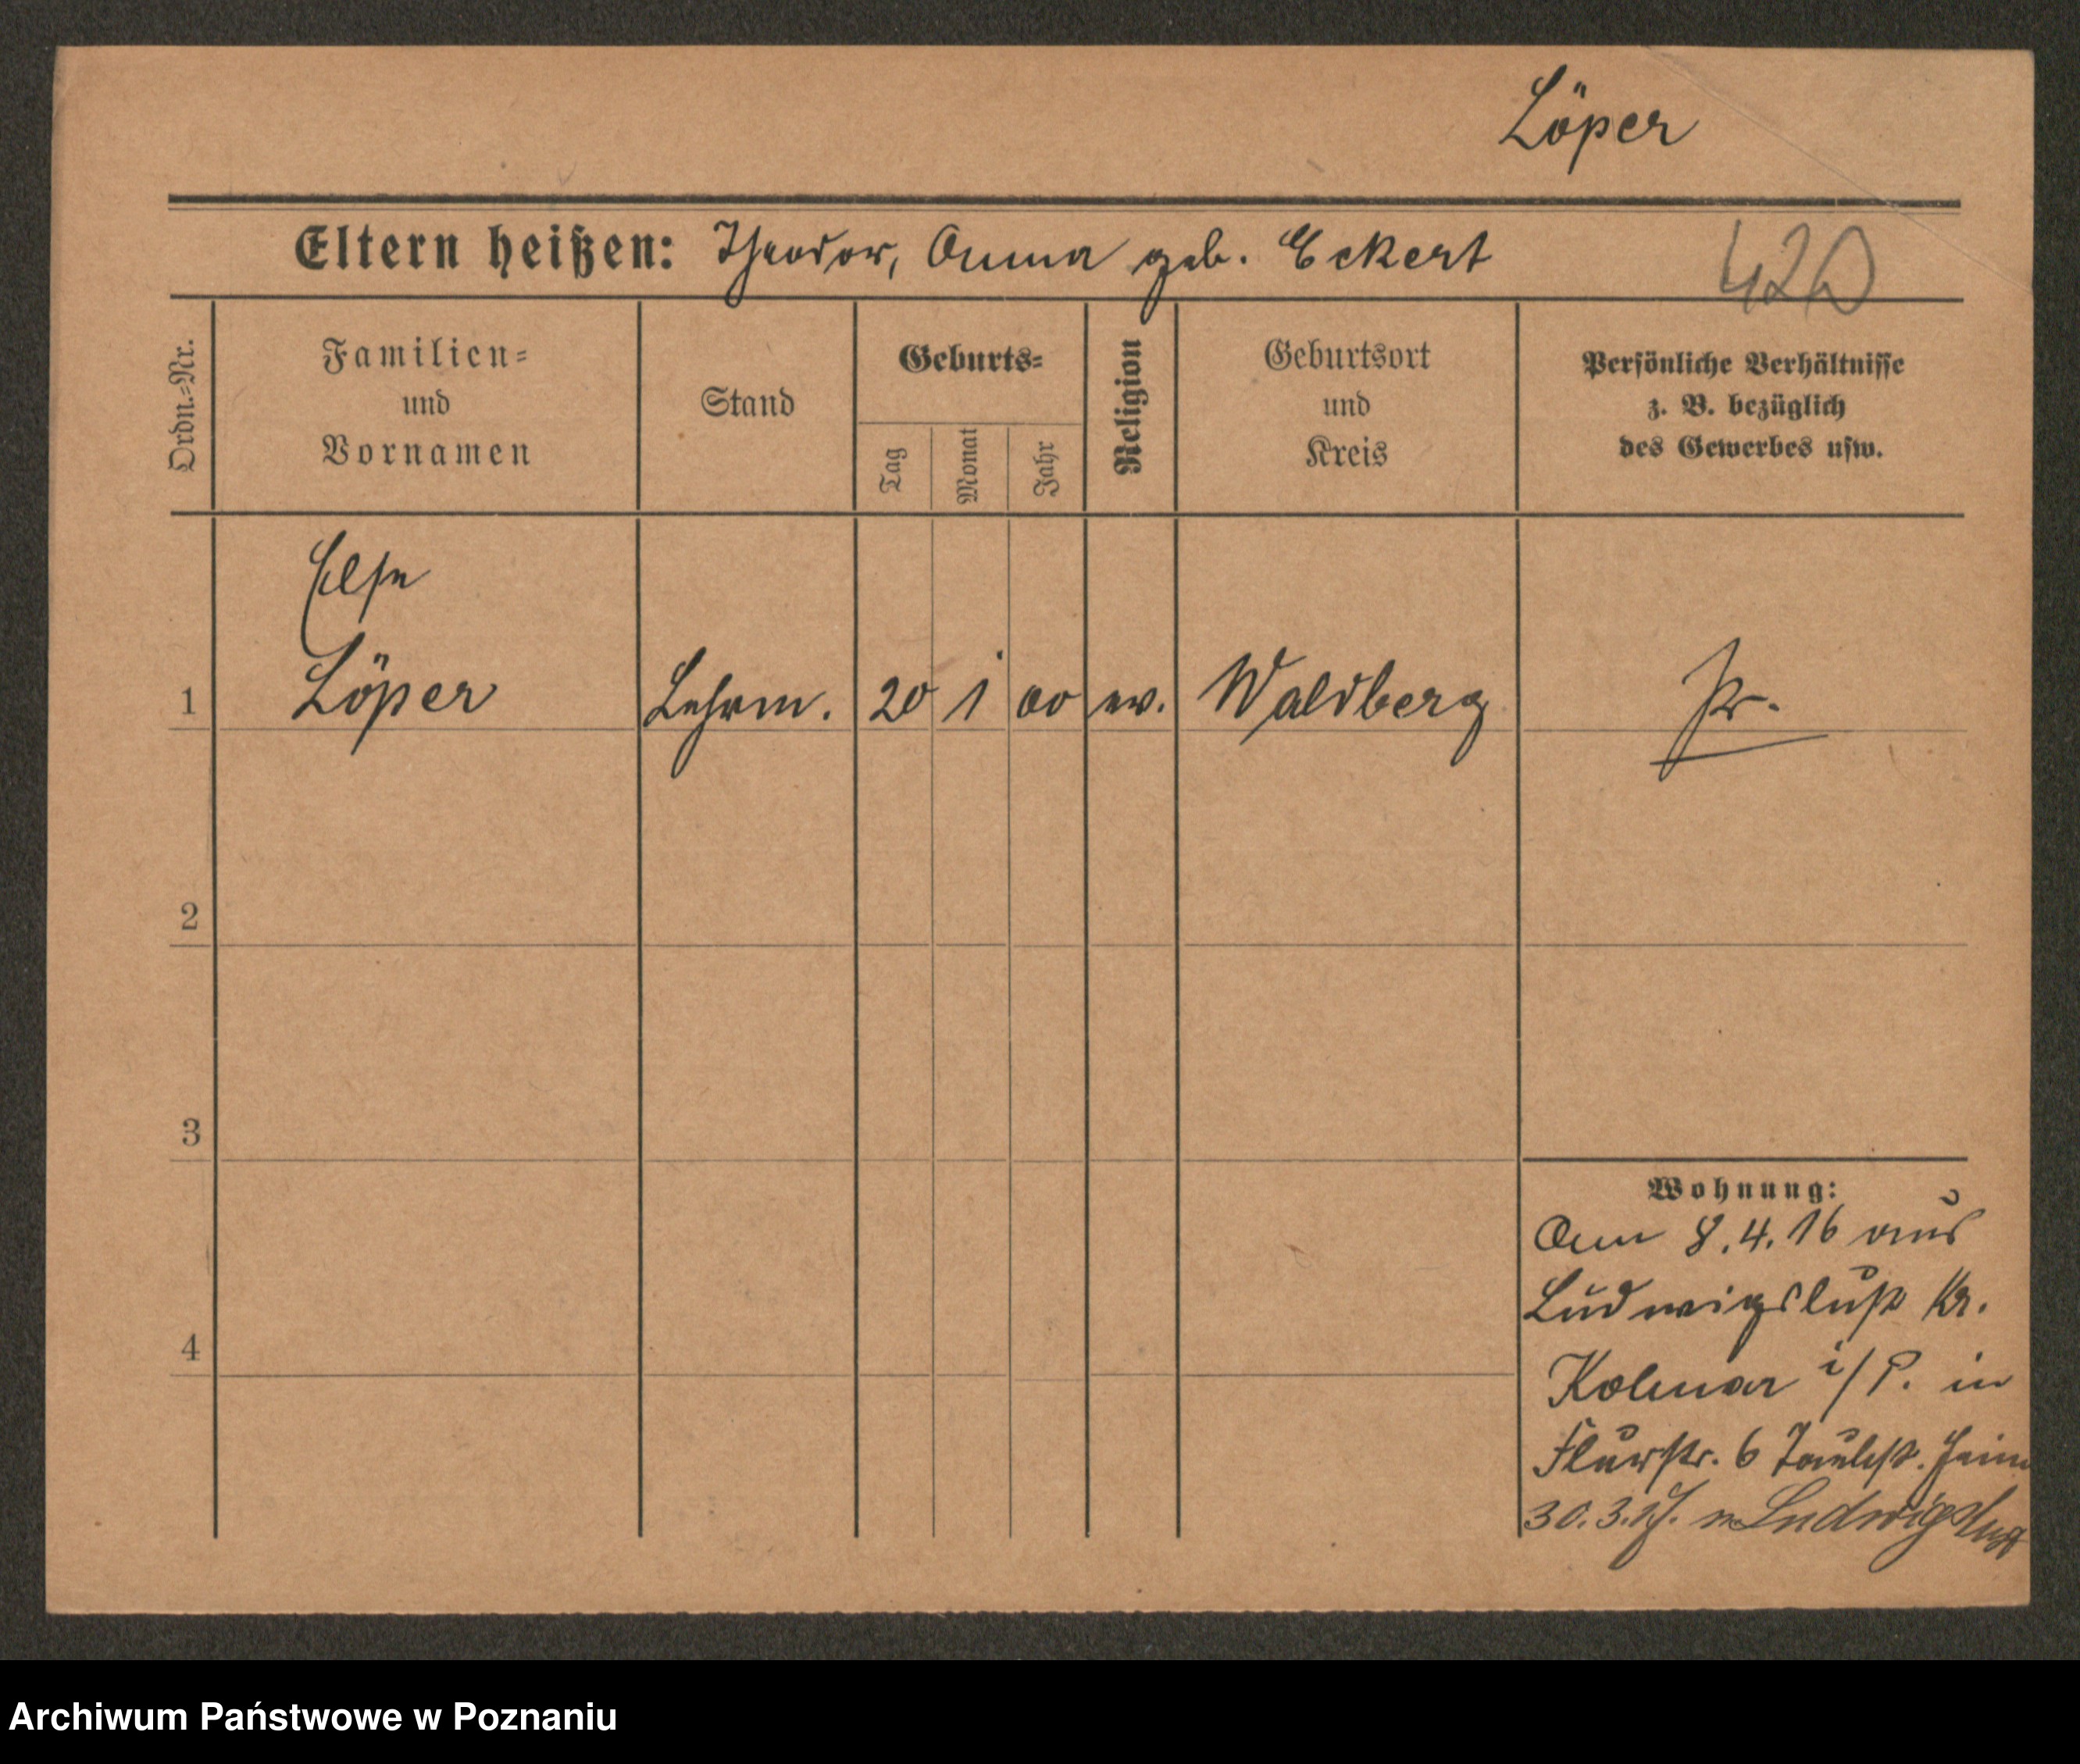 Löper
Eltern heißen: Theodor, Anna geb. Eckert
420
Ordn.=Nr.
Familien=
und
Vornamen
Stand
Geburts=
Tag
Monat
Jahr
Religion
Geburtsort
und
Kreis
Persönliche Verhältnisse
z. B. bezüglich
des Gewerbes usw.
Else
1 Löper Lehrm. 20 1 00 ev. Waldberg Pr.
2
3
4
Wohnung:
Am 8.4.16 aus
Ludwigslust Kr.
Kolmar i/P. in
Flurstr. 6 Taubst. Heim
30.3.17. n Ludwigslust
Archiwum Państwowe w Poznaniu